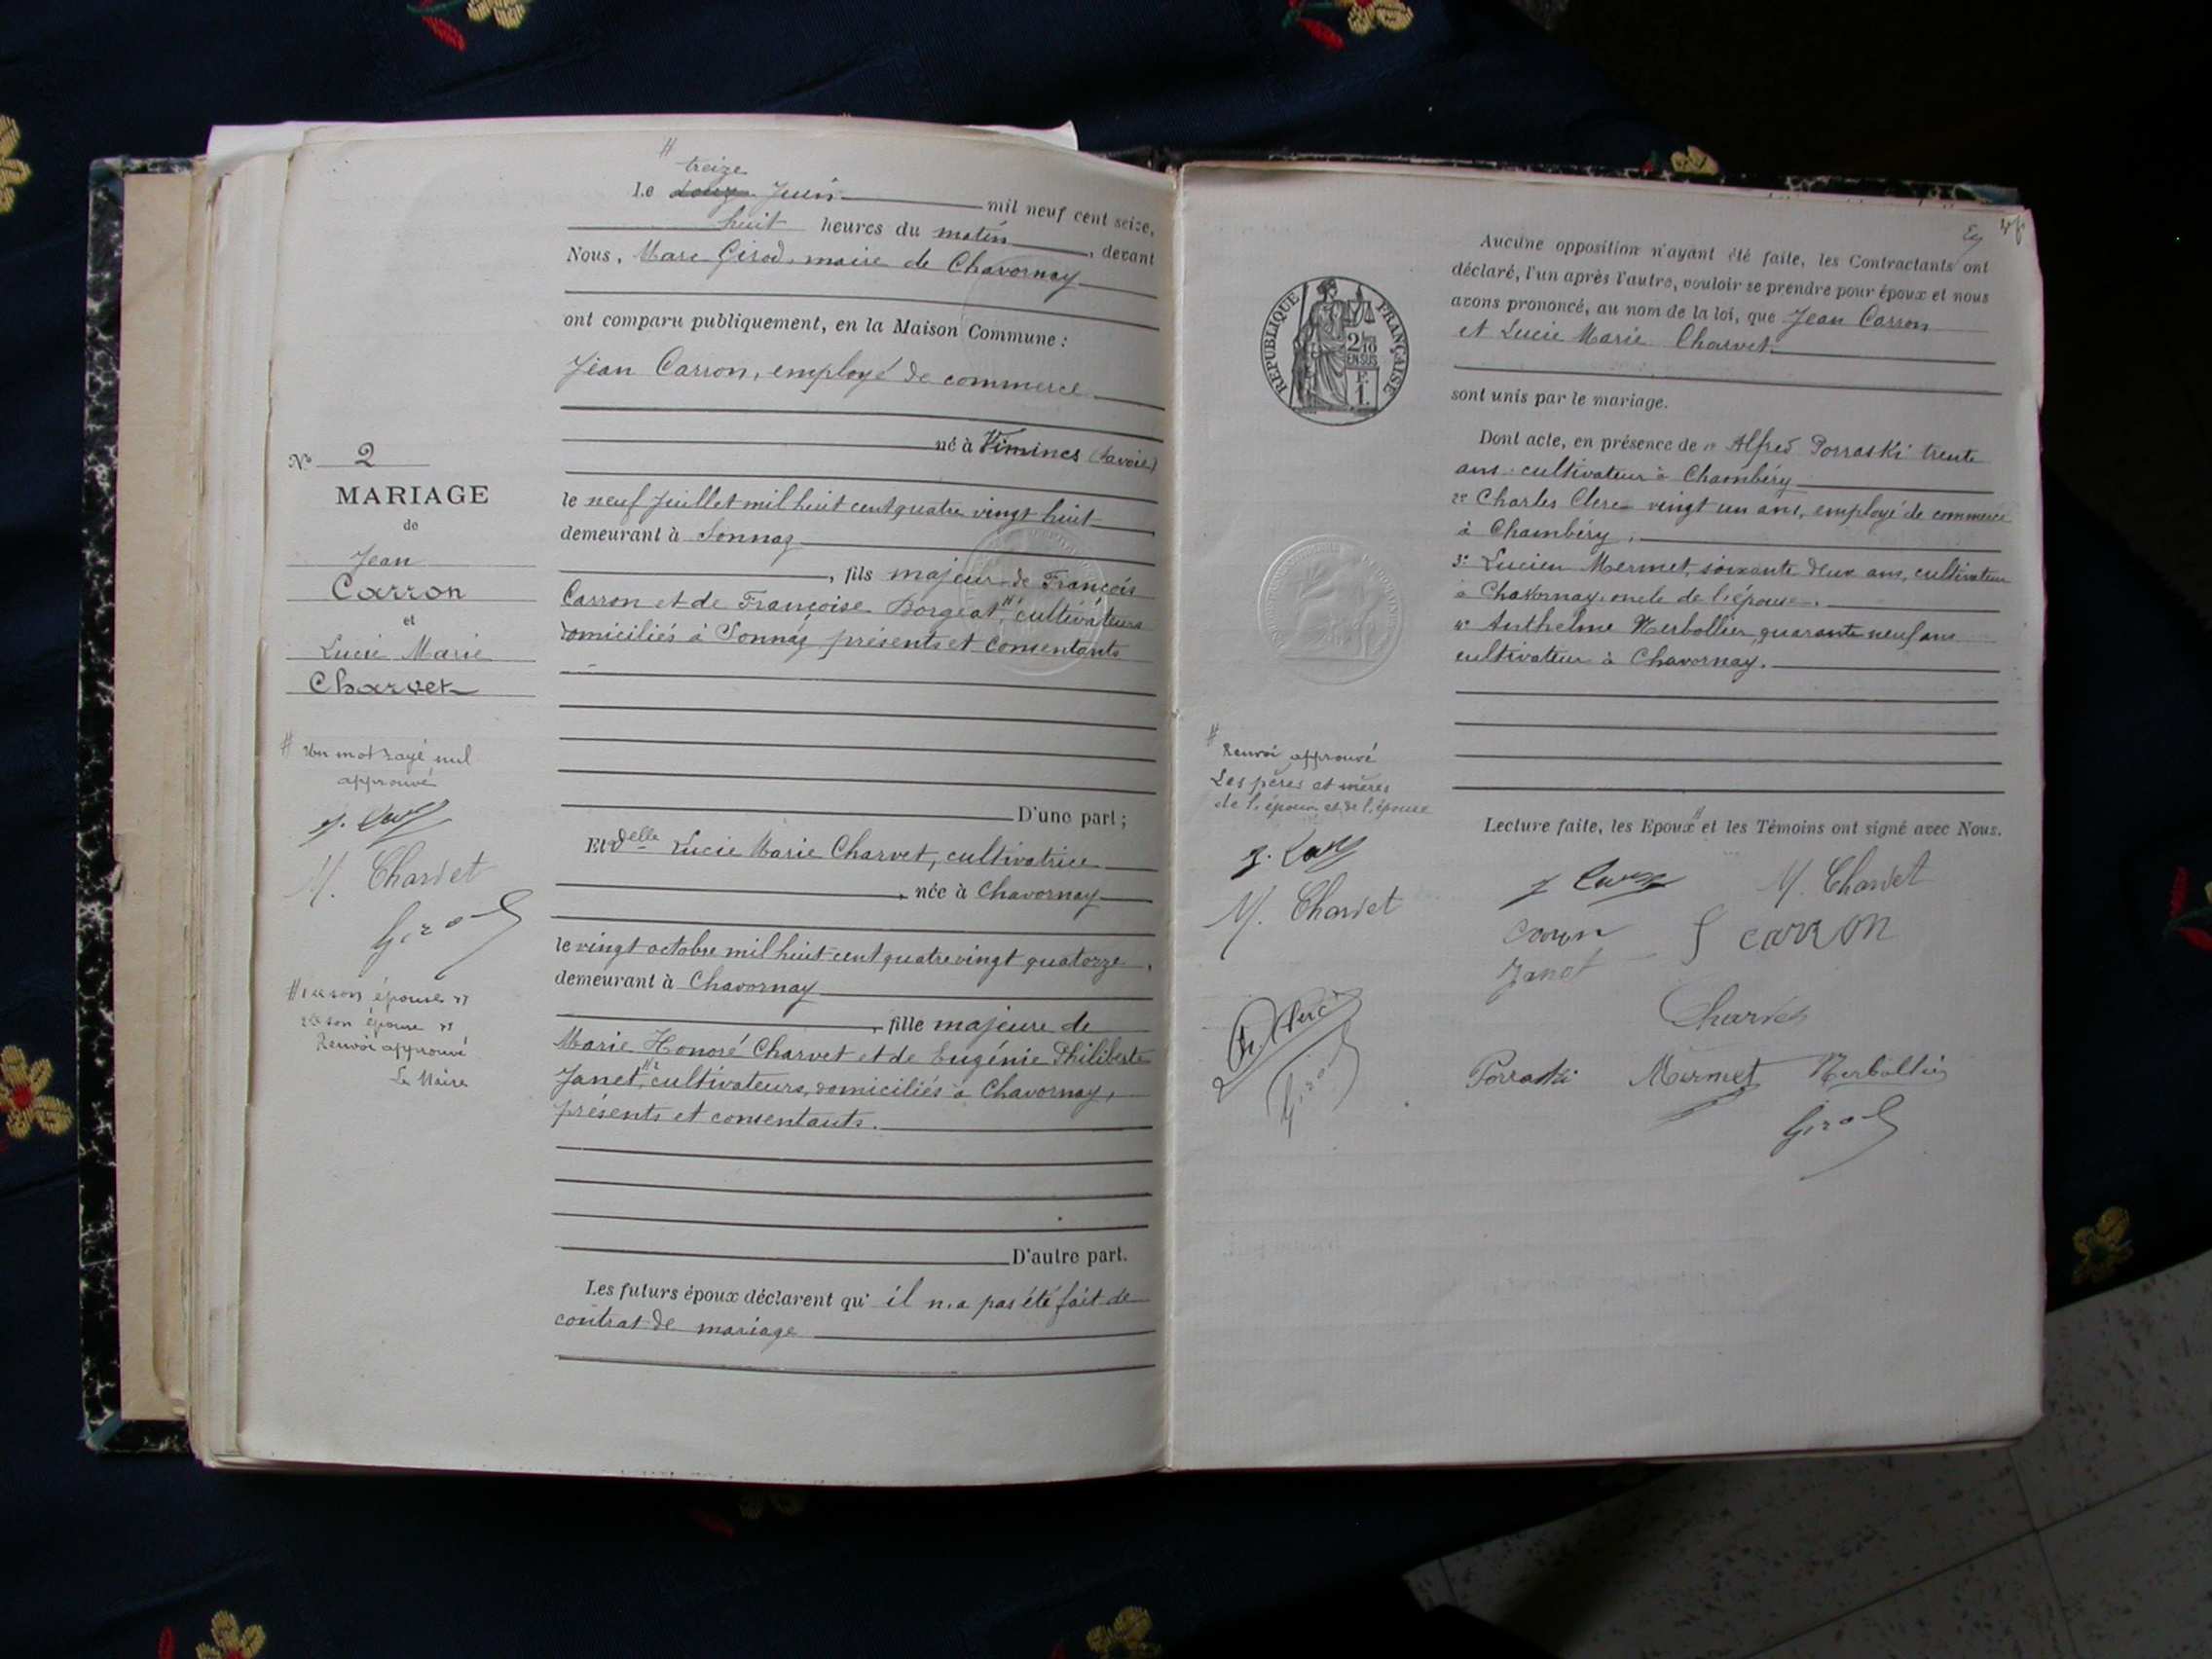 treize
Le douze Juin mil neuf cent seize,
huit heures du matin, devant
Nous, Marc Girod, maire de Chavornay
ont comparu publiquement, en la Maison Commune :
Jean Carron, employé de commerce
né à Vimines (Savoie)
le neuf Juillet mil huit cent quatre vingt huit
demeurant à Sonnaz
, fils majeur de François
Carron et de Françoise Borgeat #1, cultivateurs
domiciliés à Sonnaz présents et consentants
D'une part ;
Et Delle Lucie Marie Charvet, cultivatrice
, née à Chavornay
le vingt octobre mil huit cent quatre vingt quatorze,
demeurant à Chavornay
, fille majeure de
Marie Honoré Charvet et de Eugénie Philiberte
Janet #2, cultivateurs, domiciliés à Chavornay,
présents et consentants.
D'autre part.
Les futurs époux déclarent qu' il n'a pas été fait de
contrat de mariage
N° 2
MARIAGE
de
Jean
Carron
et
Lucie Marie
Charvet
# Un mot rayé nul
approuvé
M. Charvet
Girod
#1 son épouse
2 son épouse
Renvoi approuvé
Le Maire
Aucune opposition n'ayant été faite, les Contractants ont
déclaré, l'un après l'autre, vouloir se prendre pour époux et nous
avons prononcé, au nom de la loi, que Jean Carron
et Lucie Marie Charvet
sont unis par le mariage.
Dont acte, en présence de 1° Alfred Porraski trente
ans cultivateur à Chambéry
2° Charles Clerc vingt un ans, employé de commerce
à Chambéry,
3° Lucien Mermet, soixante deux ans, cultivateur
à Chavornay, oncle de l'épouse,
4° Anthelme Merbollier, quarante neuf ans
cultivateur à Chavornay.
Lecture faite, les Epoux # et les Témoins ont signé avec Nous.
REPUBLIQUE FRANÇAISE
2/10
EN SUS
F.
1.
# Renvoi approuvé
Les pères et mères
de l'époux et de l'épouse
M. Charvet
Girod
M. Charvet
Carron
F CARRON
Janet
Charvet
Porraski Mermet Merbollier
Girod